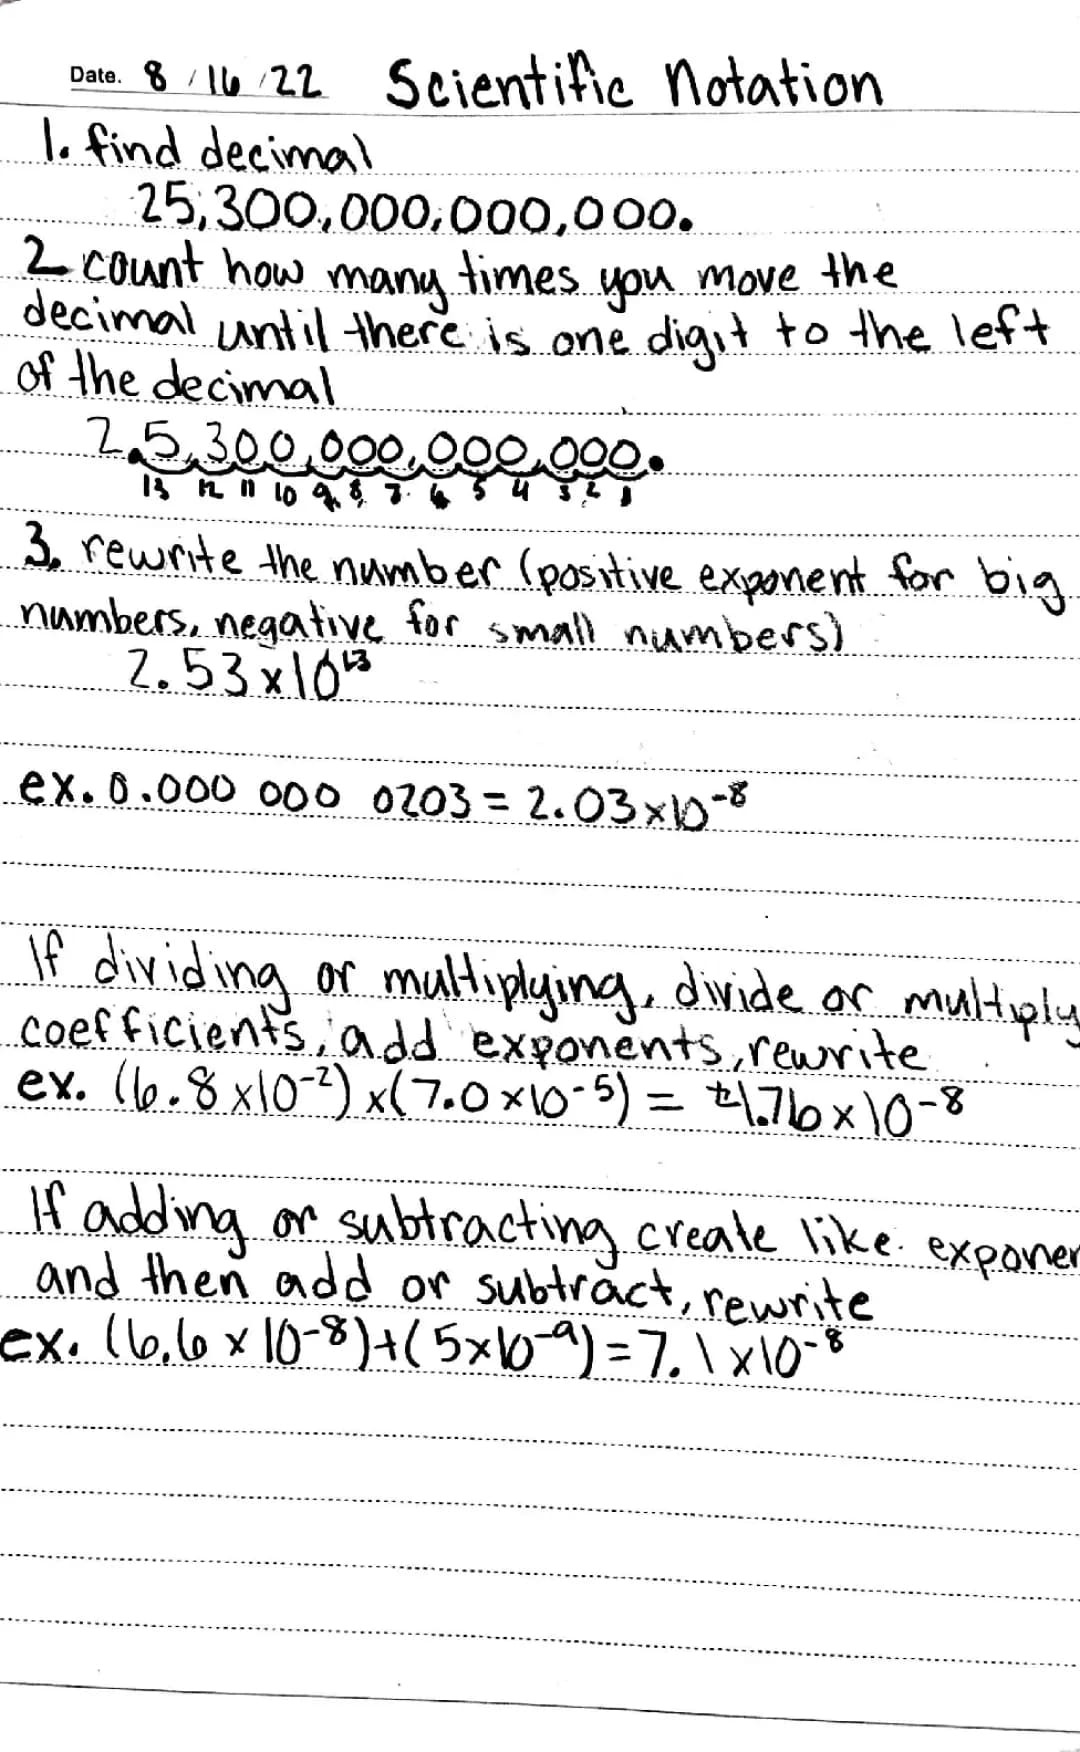 Date. 8 / 16 / 22 Scientific Notation
1. find decimal
25,300,000,000,000.
2 count how many times you move the
decimal until there is one digit to the left
of the decimal
2.5,300,000,000,000.
13 12 11 10 9 8 7 6 5 4 3 2 1
3. rewrite the number (positive exponent for big
numbers, negative for small numbers)
2.53 x 10¹³
ex. 0.000 000 0203 = 2.03 x 10⁻⁸
If dividing or multiplying, divide or multiply
coefficients, add exponents, rewrite
ex. (6.8 x 10⁻²) x (7.0 x 10⁻⁵) = 4.76 x 10⁻⁸
If adding or subtracting create like exponen
and then add or subtract, rewrite
ex. (6.6 x 10⁻⁸) + (5 x 10⁻⁹) = 7.1 x 10⁻⁸